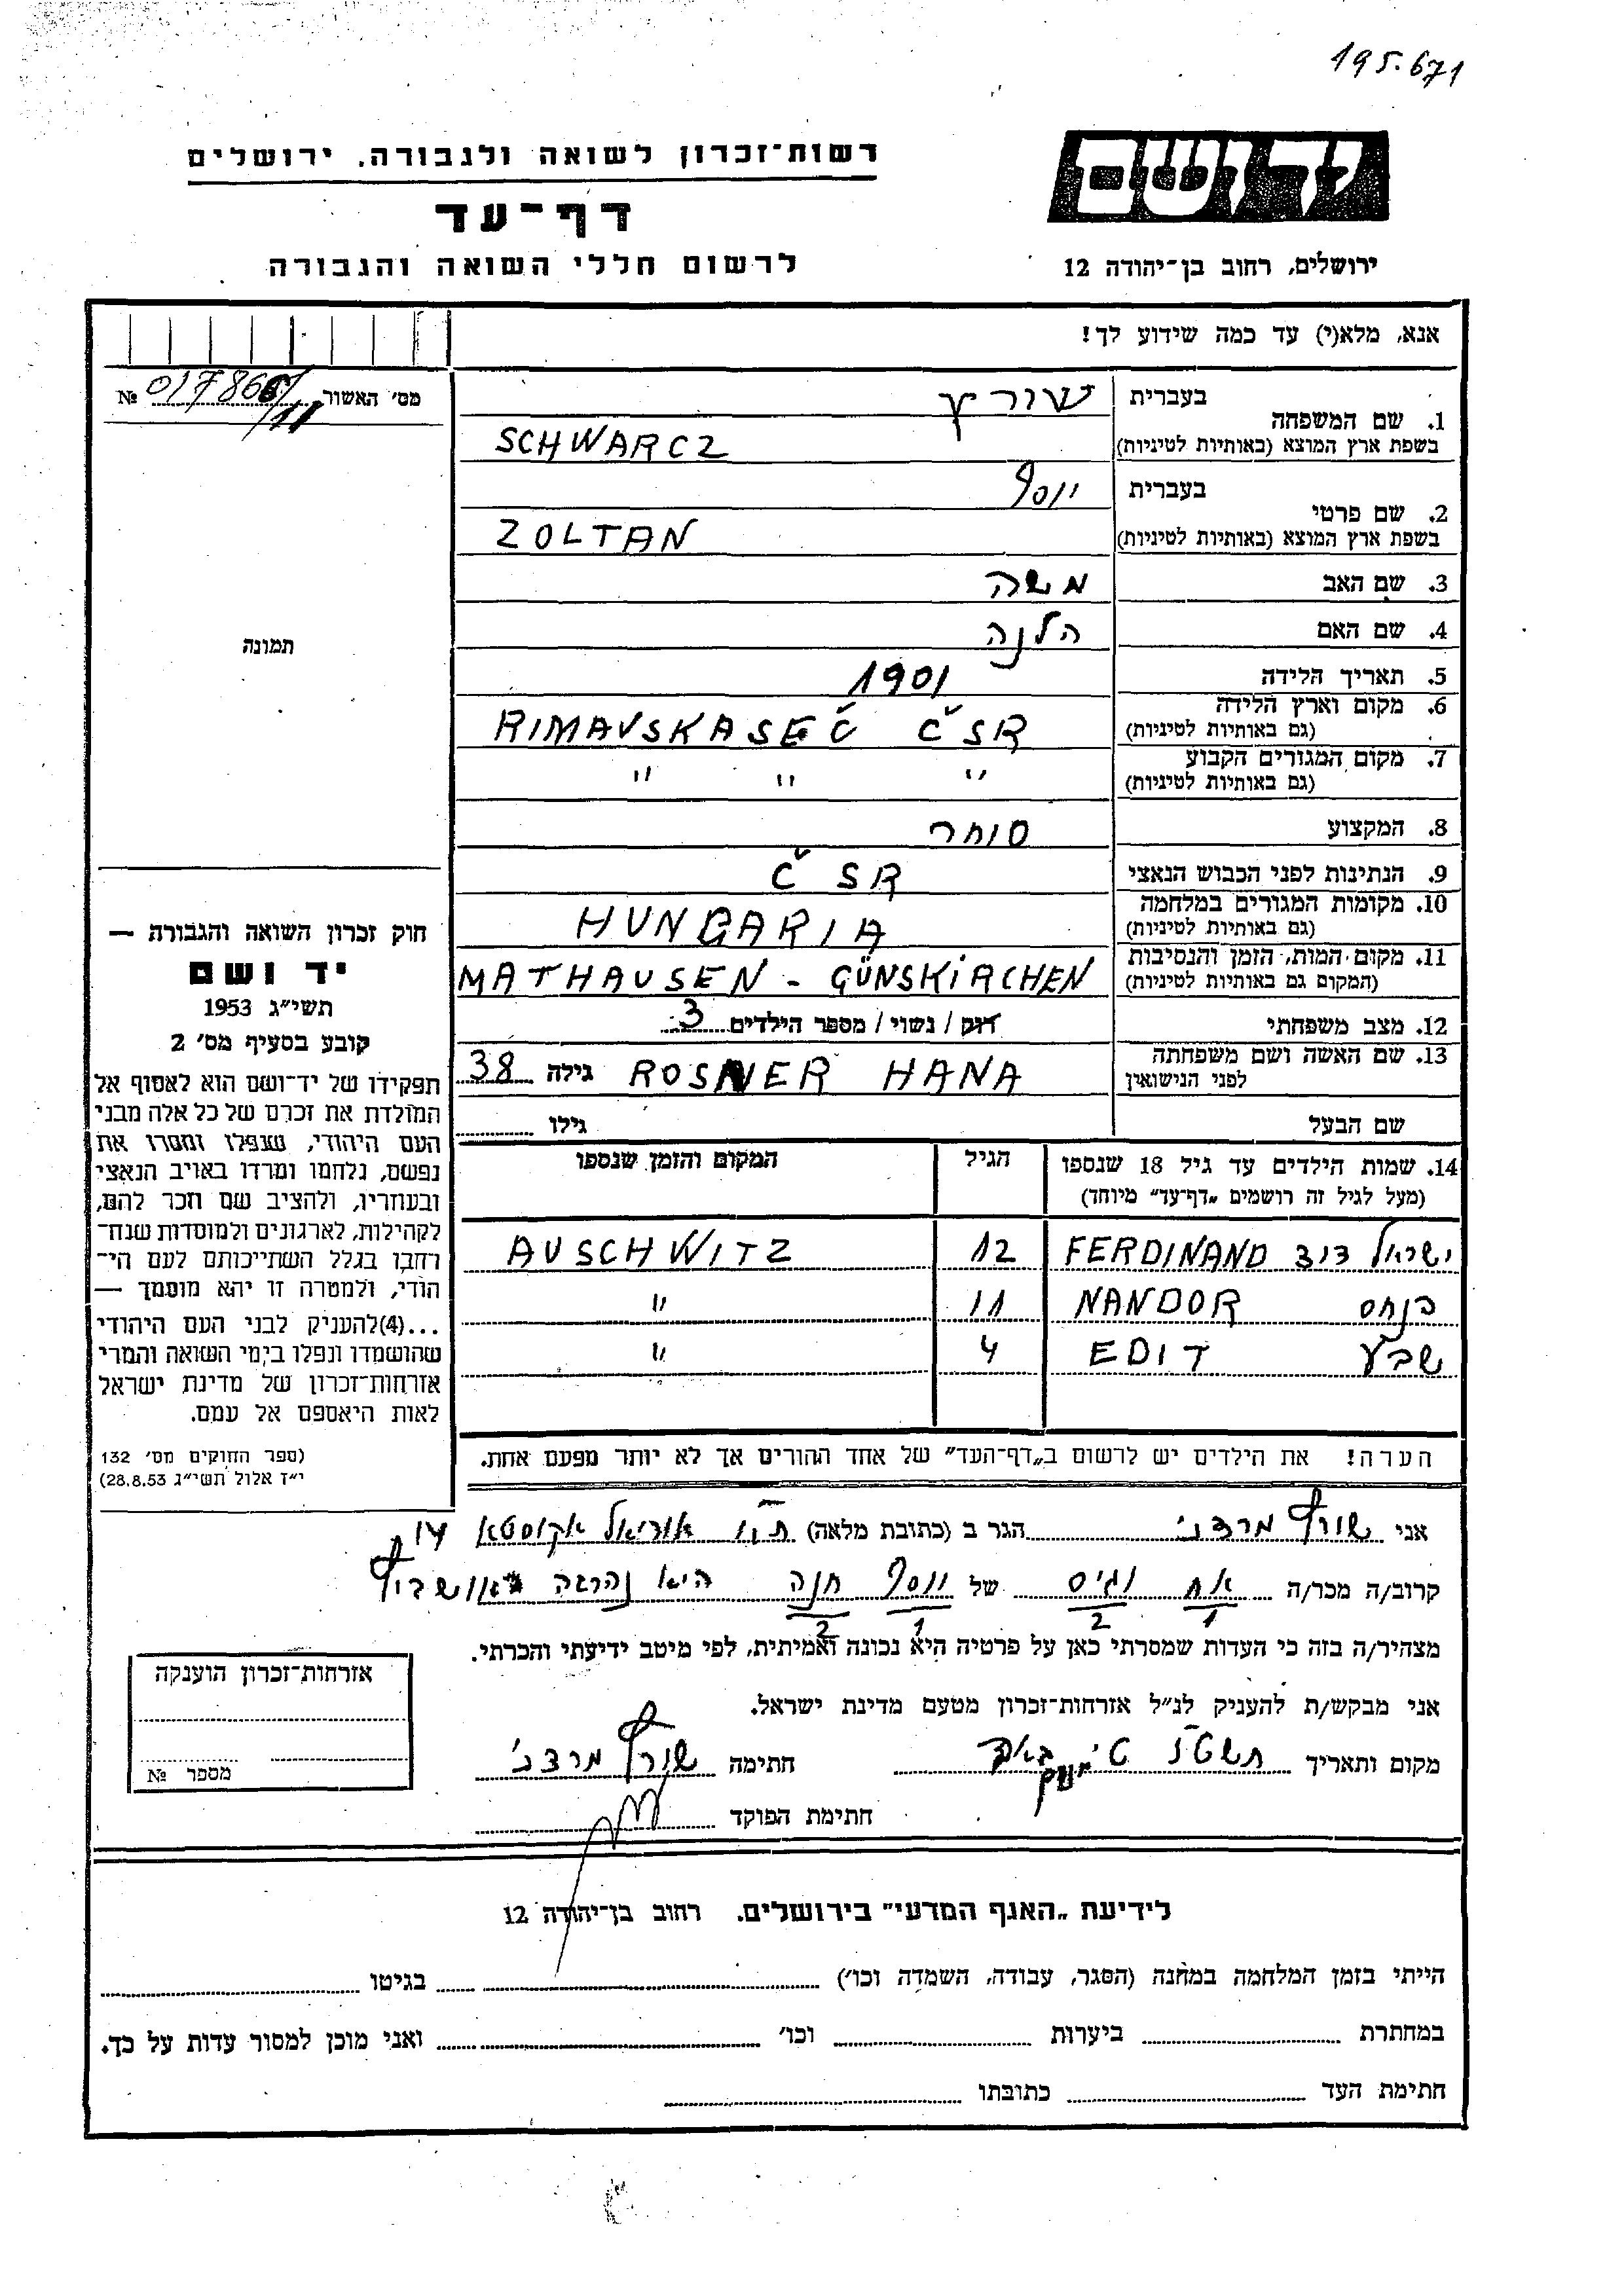 195.671
יד ושם
רשות־זכרון לשואה ולגבורה, ירושלים
דף־עד
לרשום חללי השואה והגבורה
ירושלים, רחוב בן־יהודה 12
אנא, מלא(י) עד כמה שידוע לך!
מס׳ האשור № 017866/11
1. שם המשפחה בעברית שורץ
בשפת ארץ המוצא (באותיות לטיניות) SCHWARCZ
2. שם פרטי בעברית יוסף
בשפת ארץ המוצא (באותיות לטיניות) ZOLTAN
3. שם האב משה
4. שם האם הלנה
תמונה
5. תאריך הלידה 1901
6. מקום וארץ הלידה RIMAVSKASEČ ČSR
(גם באותיות לטיניות)
7. מקום המגורים הקבוע " " "
(גם באותיות לטיניות)
8. המקצוע סוחר
9. הנתינות לפני הכבוש הנאצי ČSR
10. מקומות המגורים במלחמה HUNGARIA
(גם באותיות לטיניות)
11. מקום המות, הזמן והנסיבות MATHAUSEN - GÜNSKIRCHEN
(המקום גם באותיות לטיניות)
12. מצב משפחתי רווק / נשוי / מספר הילדים 3
13. שם האשה ושם משפחתה ROSNER HANA גילה 38
לפני הנישואין
שם הבעל גילו
14. שמות הילדים עד גיל 18 שנספו הגיל המקום והזמן שנספו
(מעל לגיל זה רושמים „דף־עד״ מיוחד)
ישראל דוד FERDINAND 12 AUSCHWITZ
פנחס NANDOR 11 "
שבע EDIT 4 "
הערה! את הילדים יש לרשום ב„דף־העד״ של אחד ההורים אך לא יותר מפעם אחת.
חוק זכרון השואה והגבורה —
יד ושם
תשי״ג 1953
קובע בסעיף מס׳ 2
תפקידו של יד־ושם הוא לאסוף אל
המולדת את זכרם של כל אלה מבני
העם היהודי, שנפלו ומסרו את
נפשם, נלחמו ומרדו באויב הנאצי
ובעוזריו, ולהציב שם וזכר להם,
לקהילות, לארגונים ולמוסדות שנח־
רבו בגלל השתייכותם לעם הי־
הודי, ולמטרה זו יהא מוסמך —
...(4)להעניק לבני העם היהודי
שהושמדו ונפלו בימי השואה והמרי
אזרחות־זכרון של מדינת ישראל
לאות היאספם אל עמם.
(ספר החוקים מס׳ 132
י״ז אלול תשי״ג 28.8.53)
אני שורץ מרדכי הגר ב (כתובת מלאה) ת״א אוריאל אקוסטא
קרוב/ה מכר/ה אח וגיס של יוסף חנה היא נהרגה באושביץ
1 2 1 2
מצהיר/ה בזה כי העדות שמסרתי כאן על פרטיה היא נכונה ואמיתית, לפי מיטב ידיעתי והכרתי.
אני מבקש/ת להעניק לנ״ל אזרחות־זכרון מטעם מדינת ישראל.
מקום ותאריך חתימה שורץ מרדכי
חתימת הפוקד
אזרחות־זכרון הוענקה
מספר №
לידיעת „האגף המדעי״ בירושלים, רחוב בן־יהודה 12
הייתי בזמן המלחמה במחנה (הסגר, עבודה, השמדה וכו׳) בגיטו
במחתרת ביערות וכו׳ ואני מוכן למסור עדות על כך.
חתימת העד כתובתו